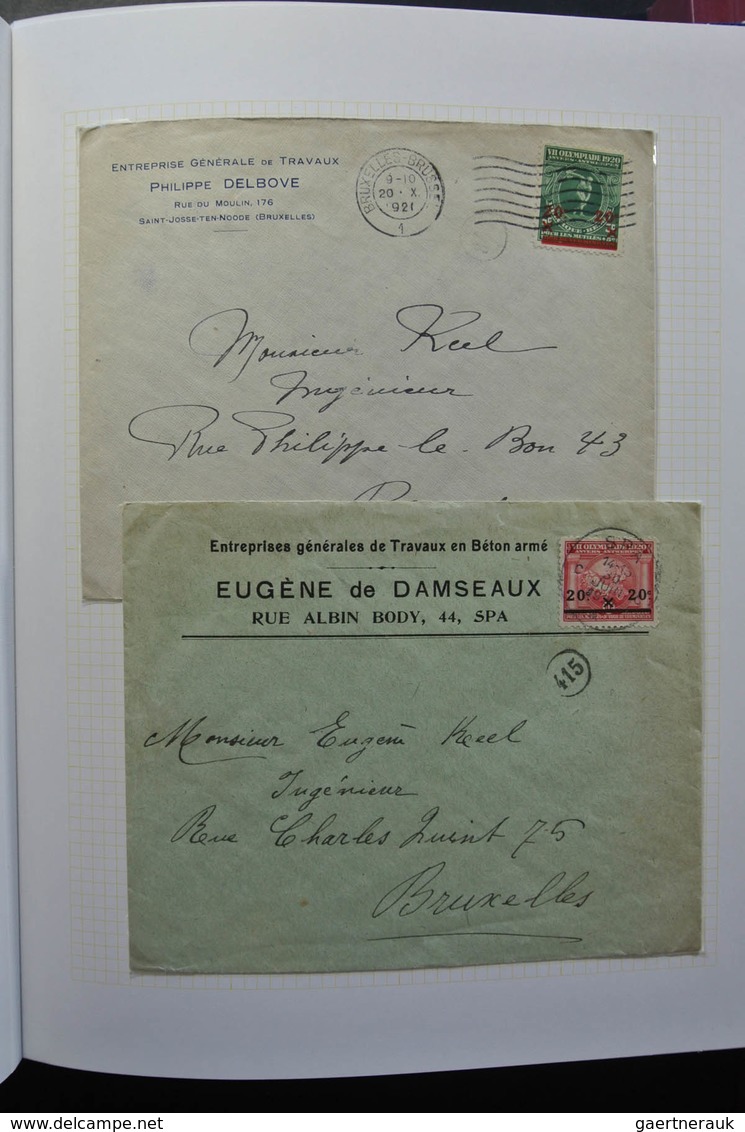 ENTREPRISE GÉNÉRALE DE TRAVAUX
PHILIPPE DELBOVE
RUE DU MOULIN, 176
SAINT-JOSSE-TEN-NOODE (BRUXELLES)
BRUXELLES-BRUSSEL
9-10
20 · X.
1921
1
VII OLYMPIADE 1920
ANVERS-ANTWERPEN
20 20
POUR LES MUTILÉS
Monsieur Keel
Ingénieur
Rue Philippe-le-Bon 43
Entreprises générales de Travaux en Béton armé
EUGÈNE de DAMSEAUX
RUE ALBIN BODY, 44, SPA
VII OLYMPIADE 1920
ANVERS ANTWERPEN
SPA
20c 20c
415
Monsieur Eugène Keel
Ingénieur
Rue Charles Quint 75
Bruxelles
gaertnerauk